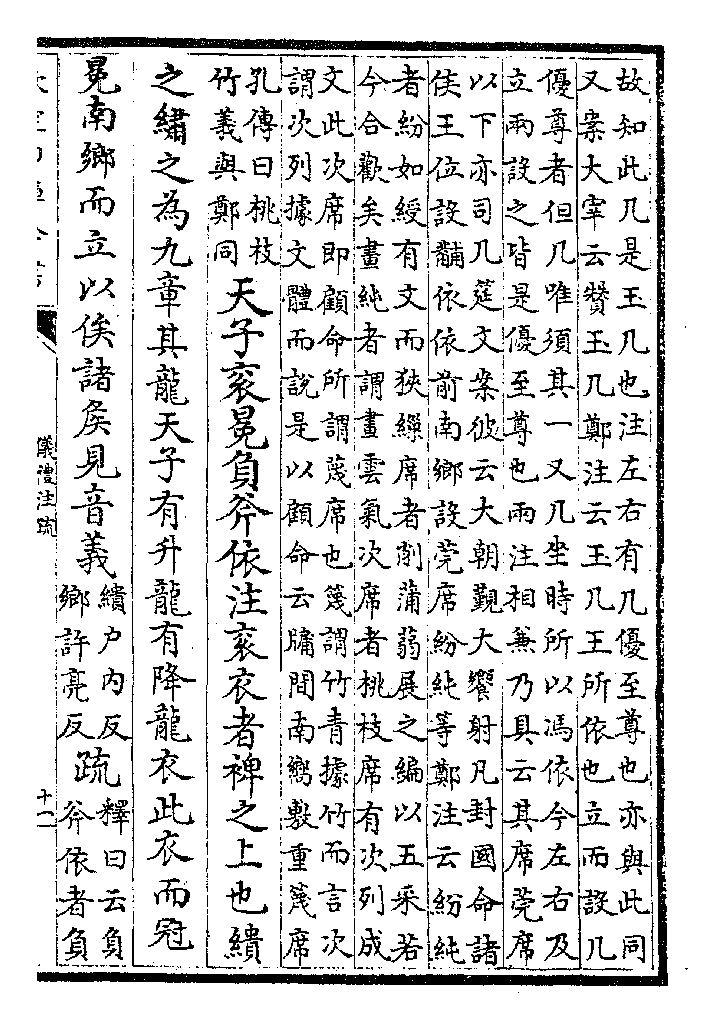 故知此几是玉几也注左右有几優至尊也亦與此同
又案大宰云贊玉几鄭注云玉几王所依也立而設几
優尊者但几唯須其一又几坐時所以馮依今左右及
立兩設之皆是優至尊也兩注相兼乃具云其席莞席
以下亦司几筵文案彼云大朝覲大饗射凡封國命諸
侯王位設黼依依前南鄉設莞席紛純等鄭注云紛純
者紛如綬有文而狹繅席者削蒲蒻展之編以五采若
今合歡矣畫純者謂畫雲氣次席者桃枝席有次列成
文此次席即顧命所謂蔑席也篾謂竹青據竹而言次
謂次列據文體而說是以顧命云牖間南嚮敷重篾席
孔傳曰桃枝竹義與鄭同天子袞冕負斧依注袞衣者裨之上也繢
之繡之為九章其龍天子有升龍有降龍衣此衣而冠
冕南鄉而立以俟諸侯見音義繢户内反鄉許亮反疏釋曰云負斧依者負
儀禮注疏
十一